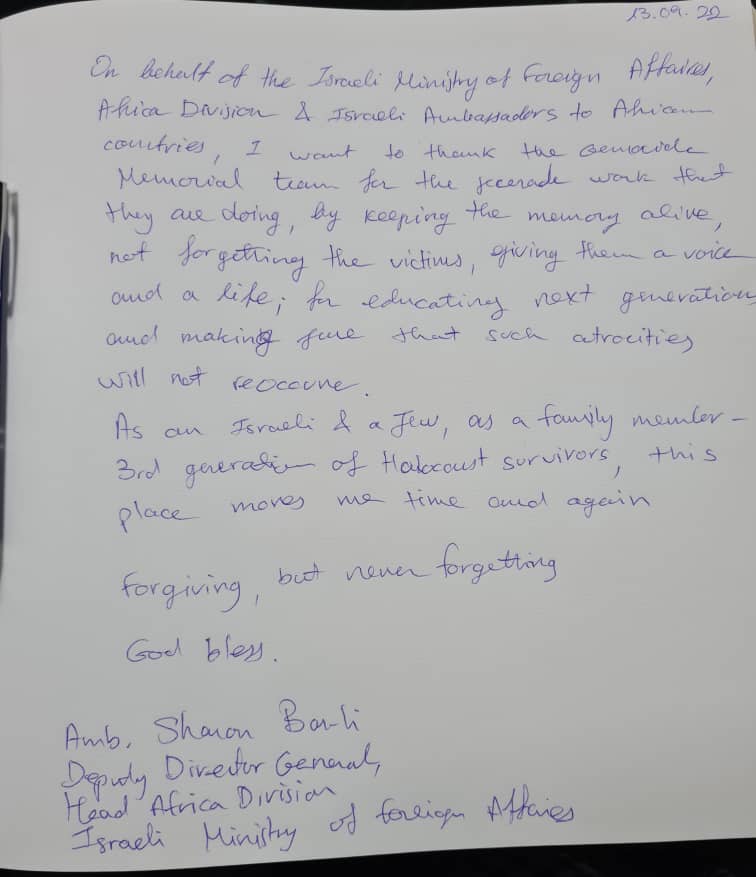 13.09.22
On behalf of the Israeli Ministry of Foreign Affaires,
Africa Division & Israeli Ambassadors to African
countries, I want to thank the Genocide
Memorial team for the work that
they are doing, by keeping the memory alive,
not forgetting the victims, giving them a voice
and a life; for educating next generation
and making sure that such atrocities
will not reoccure.
As an Israeli & a Jew, as a family member -
3rd generation of Holocoust survivors, this
place moves me time and again
forgiving, but never forgetting
God bless.
Amb. Sharon Bar-li
Deputy Director General,
Head Africa Division
Israeli Ministry of foreign Affaires